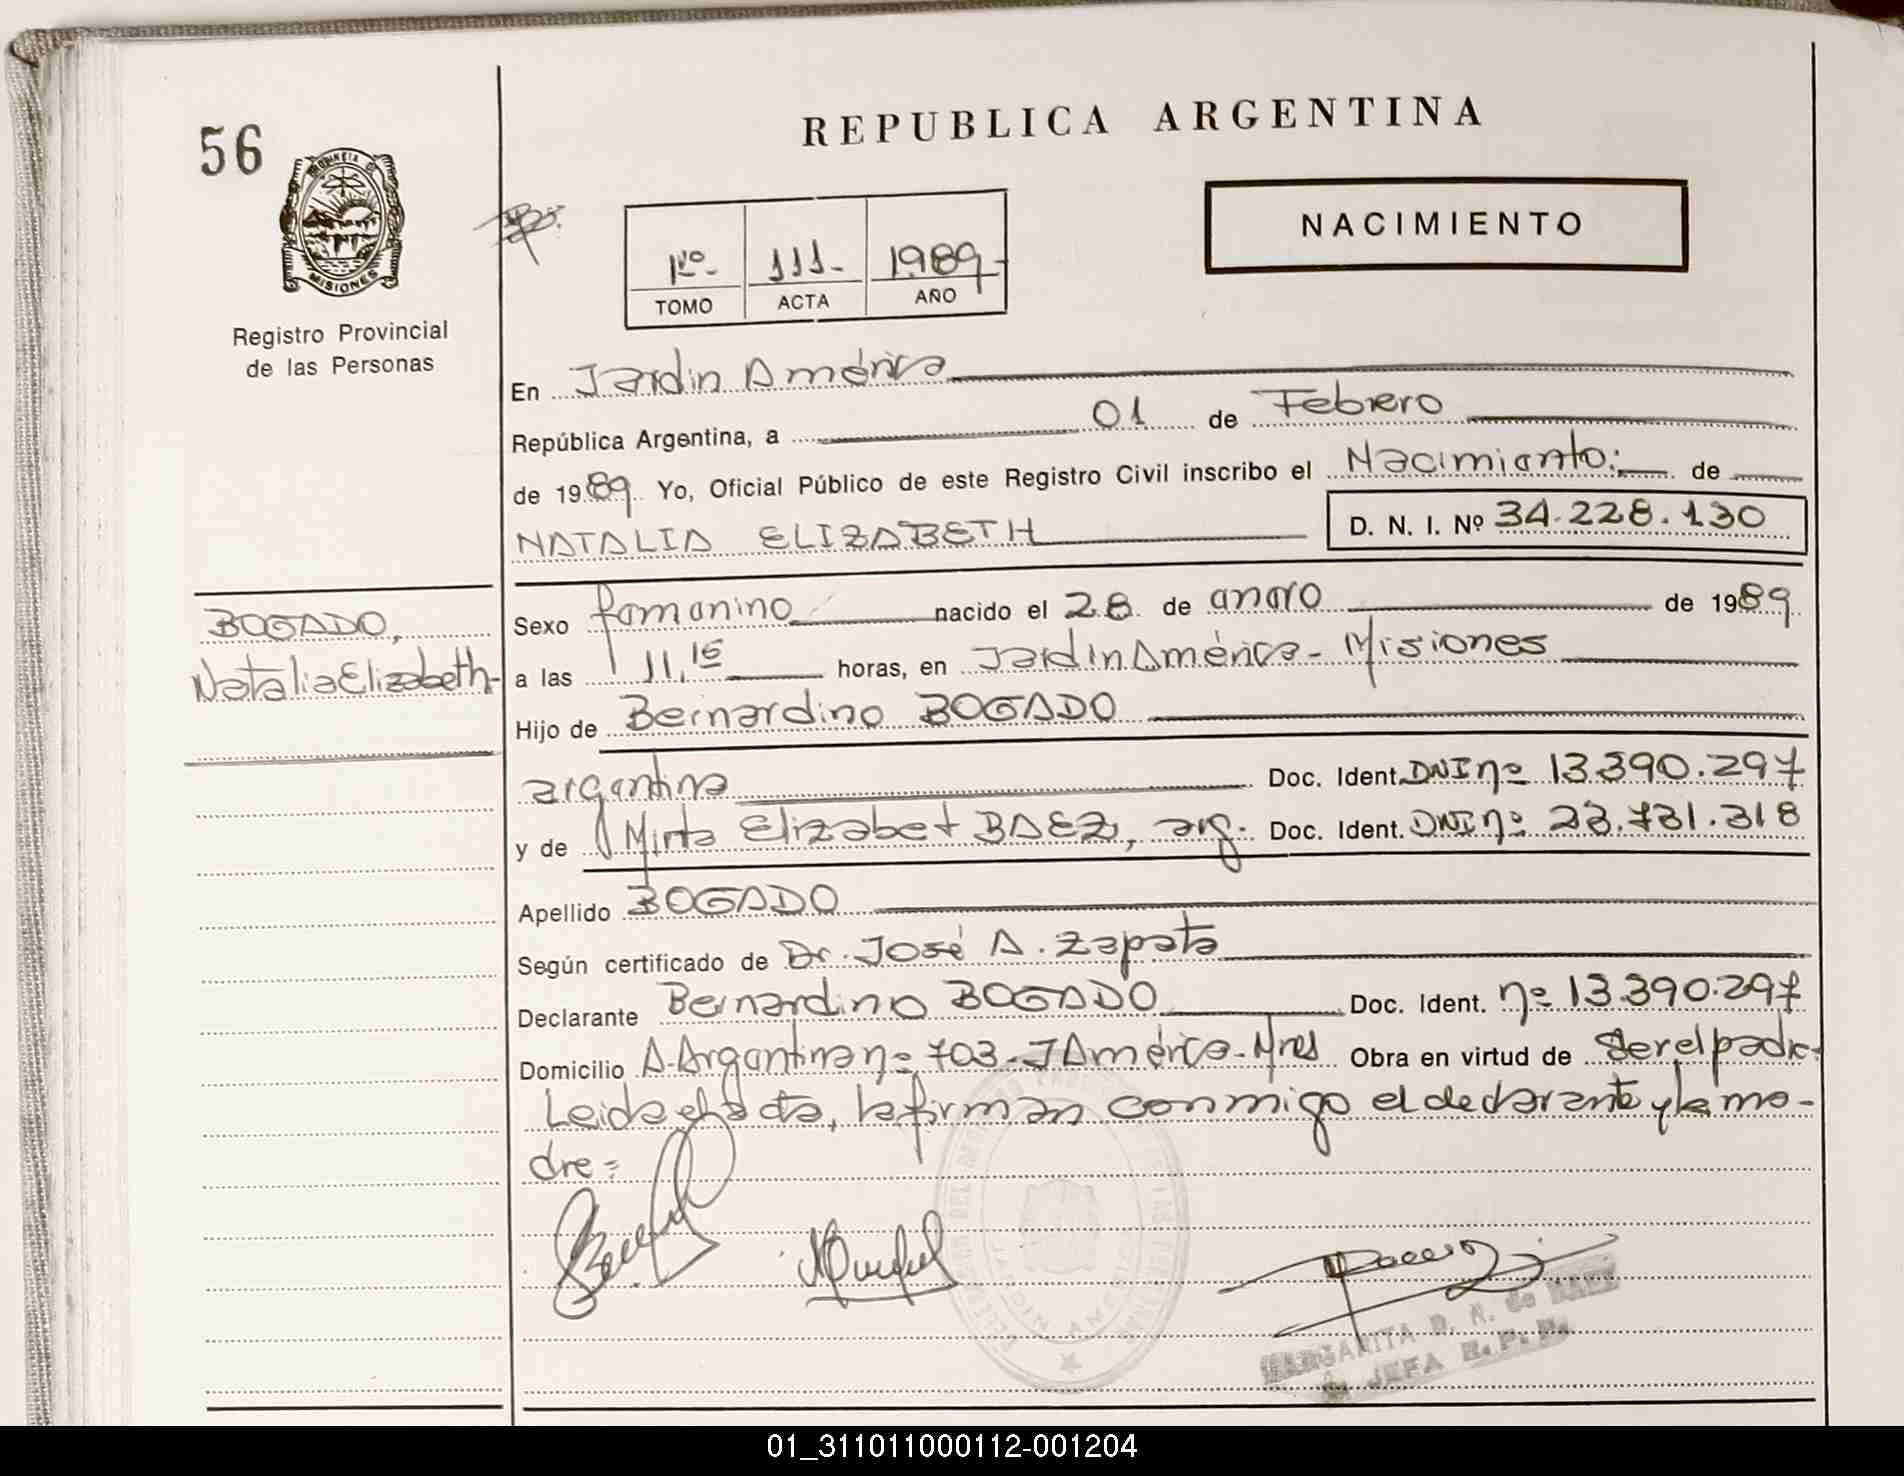 REPUBLICA ARGENTINA
56
PROVINCIA DE
MISIONES
Registro Provincial
de las Personas
1º- 111- 1989-
TOMO ACTA AÑO
NACIMIENTO
En Jardin América
República Argentina, a 01 de Febrero
de 1989 Yo, Oficial Público de este Registro Civil inscribo el Nacimiento: de
NATALIA ELIZABETH D. N. I. Nº 34.228.130
BOGADO,
Natalia Elizabeth-
Sexo femenino nacido el 28 de enero de 1989
a las 11,15 horas, en Jardin América - Misiones
Hijo de Bernardino BOGADO
argentina Doc. Ident. DNI nº 13.390.297
y de Mirta Elizabet BAEZ, arg. Doc. Ident. DNI nº 23.731.318
Apellido BOGADO
Según certificado de Dr. José A. Zapata
Declarante Bernardino BOGADO Doc. Ident. nº 13.390.297
Domicilio A. Argentina nº 703 - J América - Mnes Obra en virtud de ser el padre
Leida el acta, la firman conmigo el declarante y la ma-
dre =
MARGARITA D. N. de BAEZ
JEFA R. P. P.
01_311011000112-001204